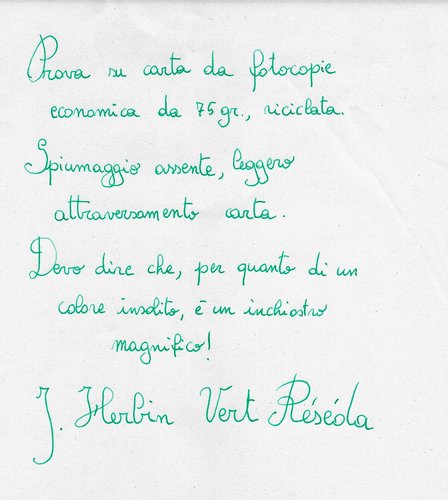 Prova su carta da fotocopie
economica da 75 gr., riciclata.
Spiumaggio assente, leggero
attraversamento carta.
Devo dire che, per quanto di un
colore insolito, è un inchiostro
magnifico!
J. Herbin Vert Réséda